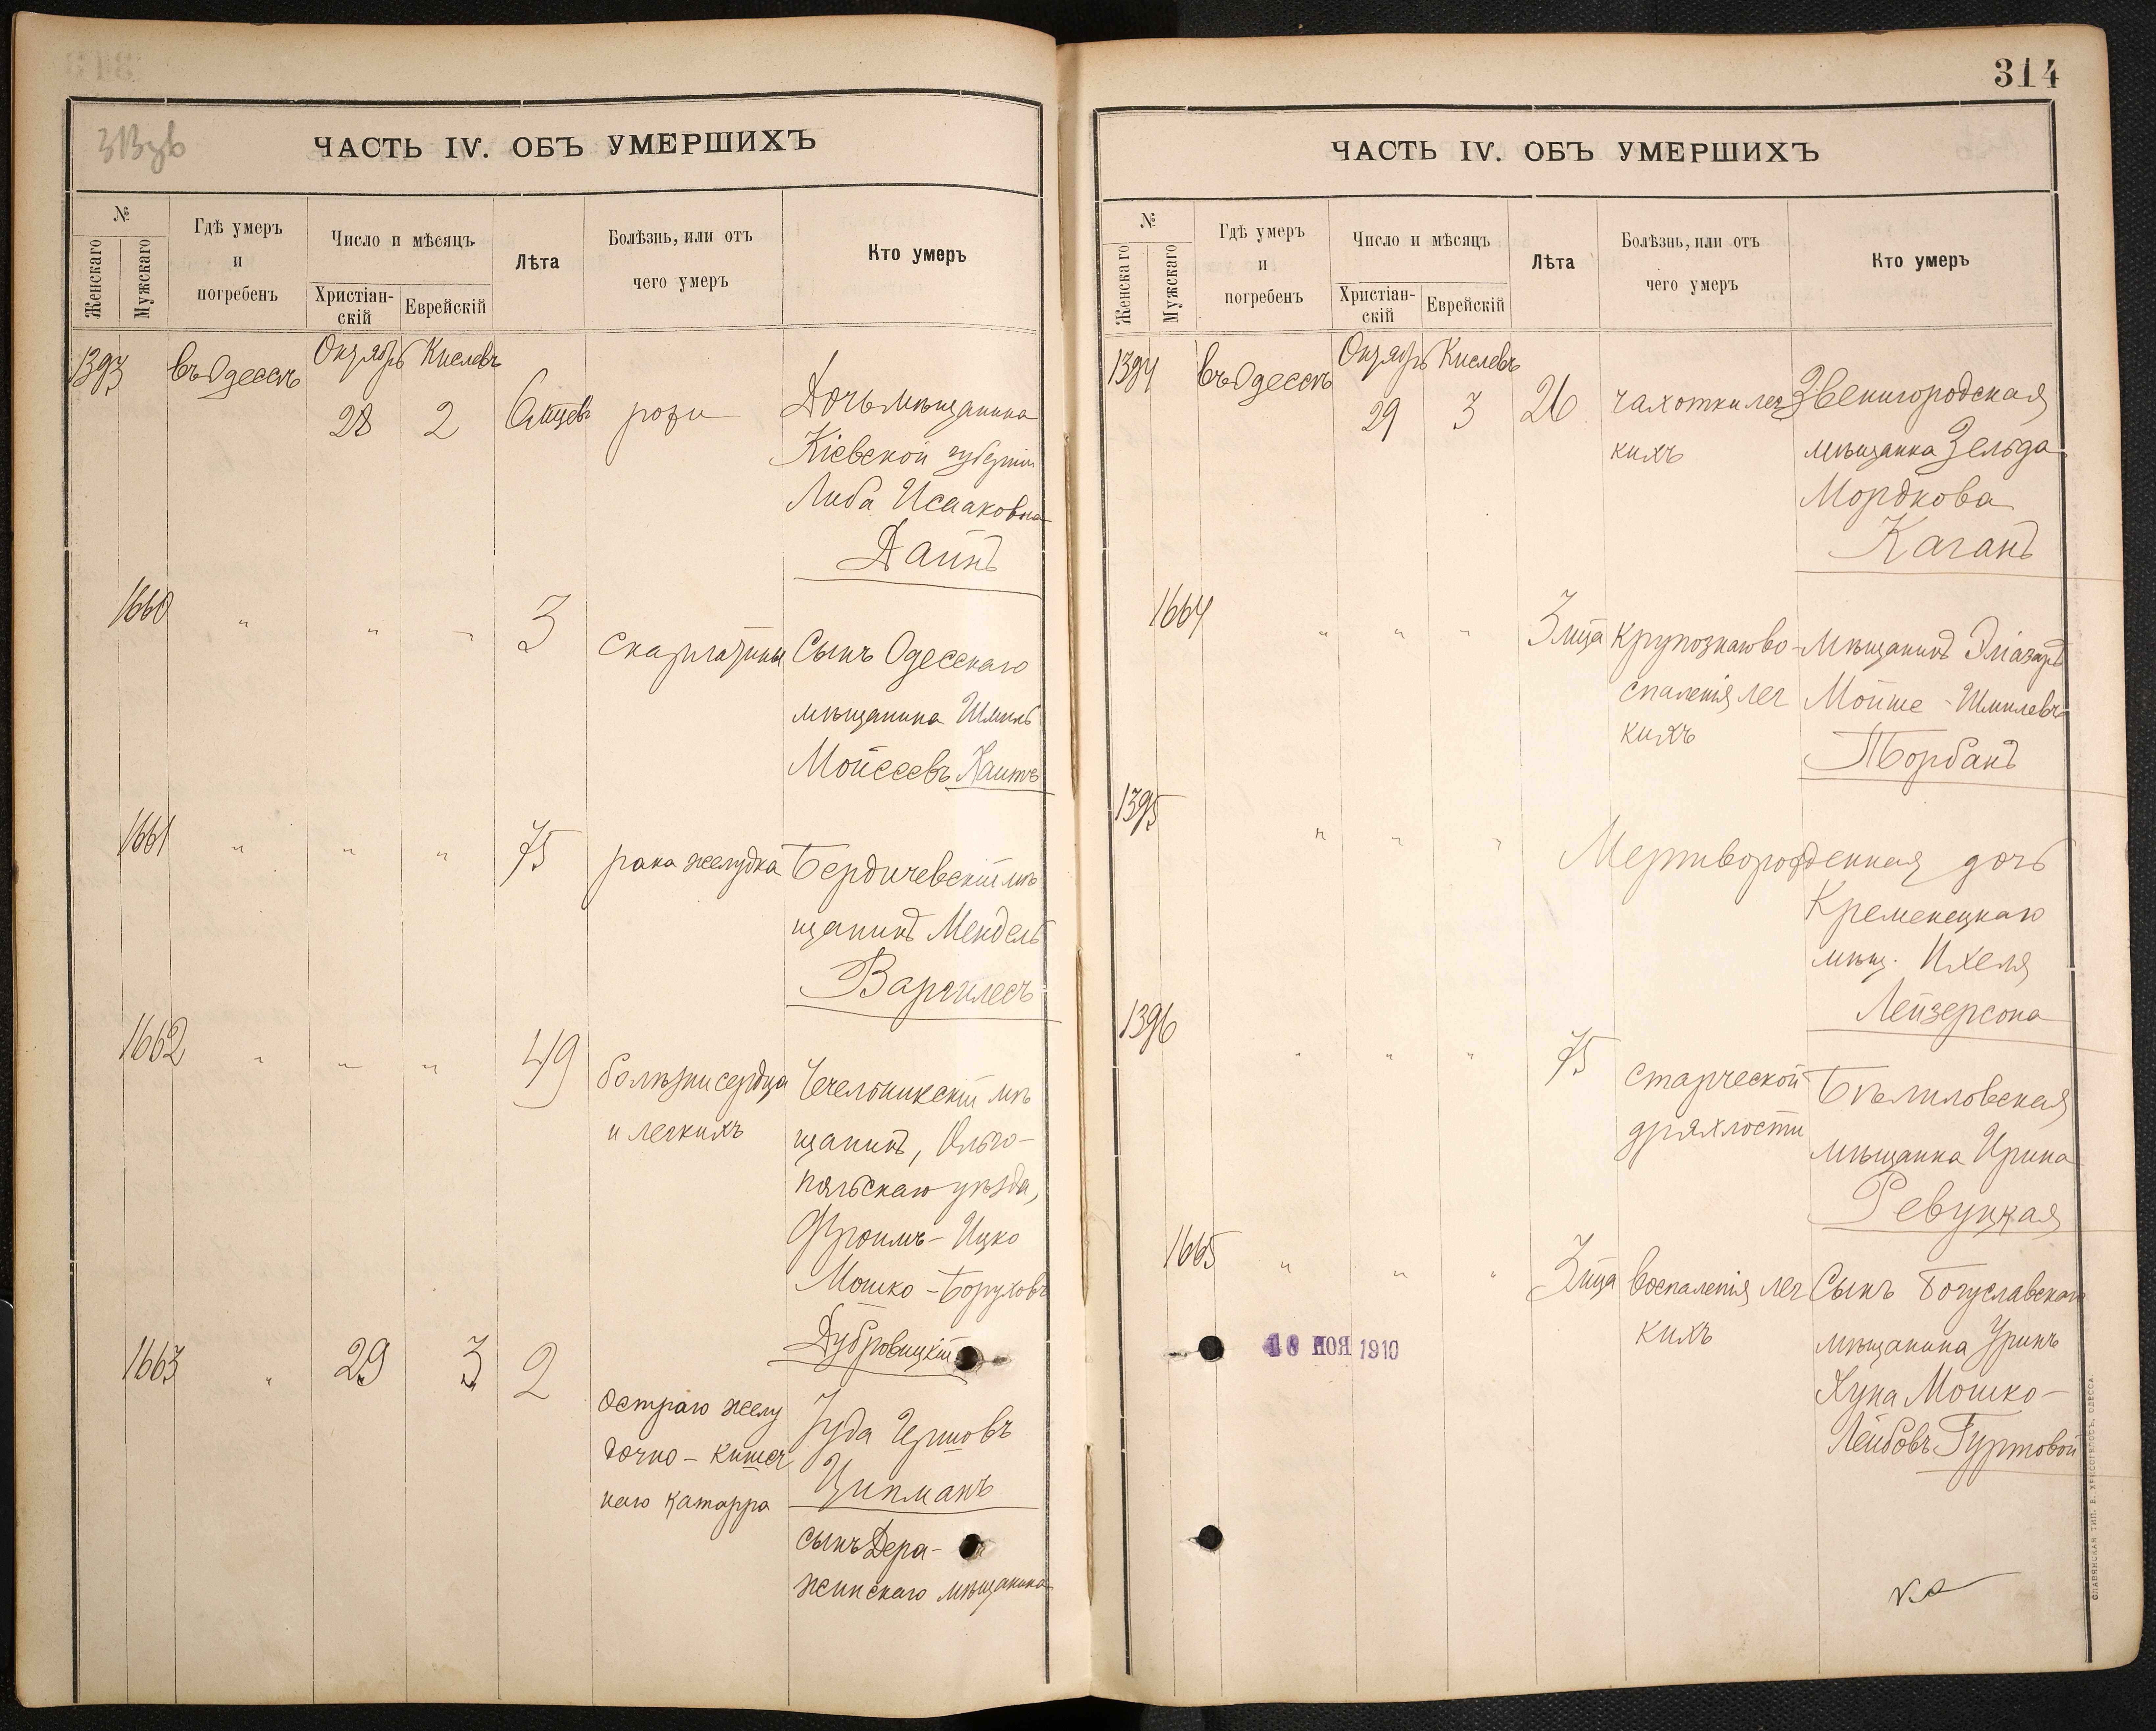 313 зв
ЧАСТЬ IV. ОБЪ УМЕРШИХЪ
№
Женскаго
Мужскаго
Гдѣ умеръ
и
погребенъ
Число и мѣсяцъ
Христіан-
скій
Еврейскій
Лѣта
Болѣзнь, или отъ
чего умеръ
Кто умеръ
1393
въ Одессѣ
Октябрь
28
Кислевъ
2
6 мцевъ
рожи
Дочь мѣщанина
Кіевской губерніи
Либа Исааковна
Даинъ
1660
" " "
3
скарлатины
Сынъ Одесскаго
мѣщанина Шмиль
Мойсеевъ
1661
" " "
75
рака желудка
Бердичевскій мѣ
щанинъ Мендель
Варгилесъ
1662
" " "
49
болѣзни сердца
и легкихъ
Чечельникскій мѣ
щанинъ, Ольго-
польскаго уѣзда,
Фроимъ-Ицко
Мошко-Боруховъ
Дубровицкій
1663
"
29
3
2
Остраго желу
дочно-кишеч
наго катарра
Іуда Гершовъ
Ципманъ
сынъ Дера-
жинскаго мѣщанина
314
ЧАСТЬ IV. ОБЪ УМЕРШИХЪ
№
Женскаго
Мужскаго
Гдѣ умеръ
и
погребенъ
Число и мѣсяцъ
Христіан-
скій
Еврейскій
Лѣта
Болѣзнь, или отъ
чего умеръ
Кто умеръ
1394
въ Одессѣ
Октябрь
29
Кислевъ
3
26
чахотки лег
кихъ
Звенигородская
мѣщанка Зельда
Мордкова
Каганъ
1664
" " "
3 мца
крупознаго во-
спаленія лег
кихъ
Мѣщанинъ Эліазаръ
Мойше-Шмилевъ
Торбанъ
1395
" " "
Мертворожденная дочь
Кременецкаго
мѣщ. Ихеля
Лейзерсона
1396
" " "
75
старческой
дряхлости
Бѣлиловская
мѣщанка Ирина
Ревуцкая
1665
" " "
3 мца
воспаленія лег
кихъ
Сынъ Богуславскаго
мѣщанина Уринъ
Хуна Мошко-
Лейбовъ Гуртовой
10 НОЯ 1910
СЛАВЯНСКАЯ ТИП. Е. ХРИСОГЕЛОСЪ, ОДЕССА.